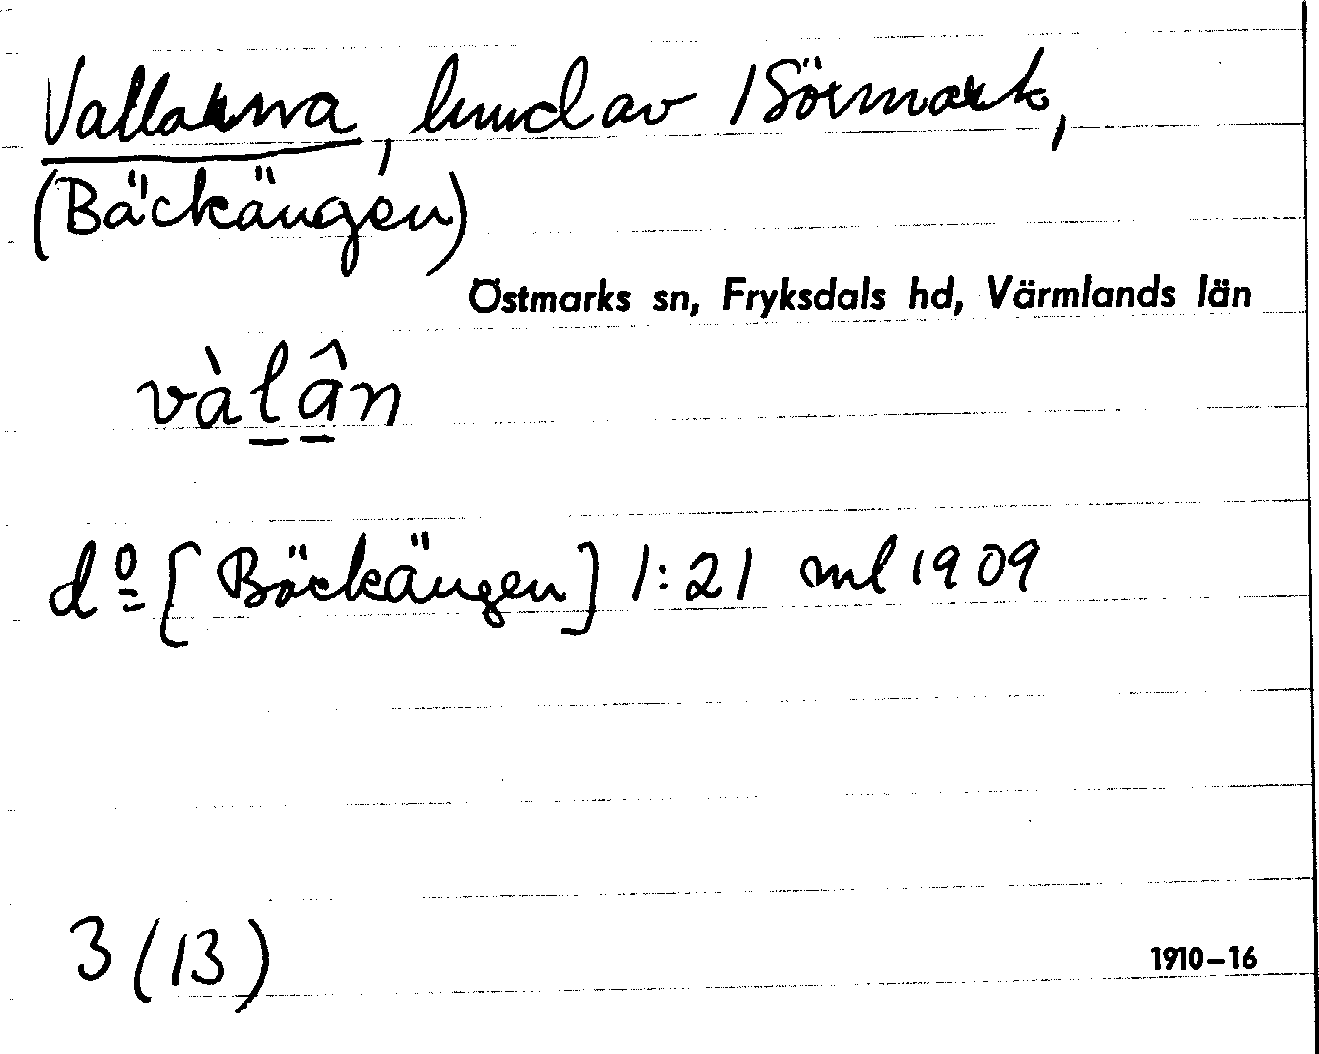 Vallarna, hmd av 1 Sörmark,
(Bäckängen)
Östmarks sn, Fryksdals hd, Värmlands län
vàlân
dº [Bäckängen] 1:21 ml 1909
3 (13)
1910–16